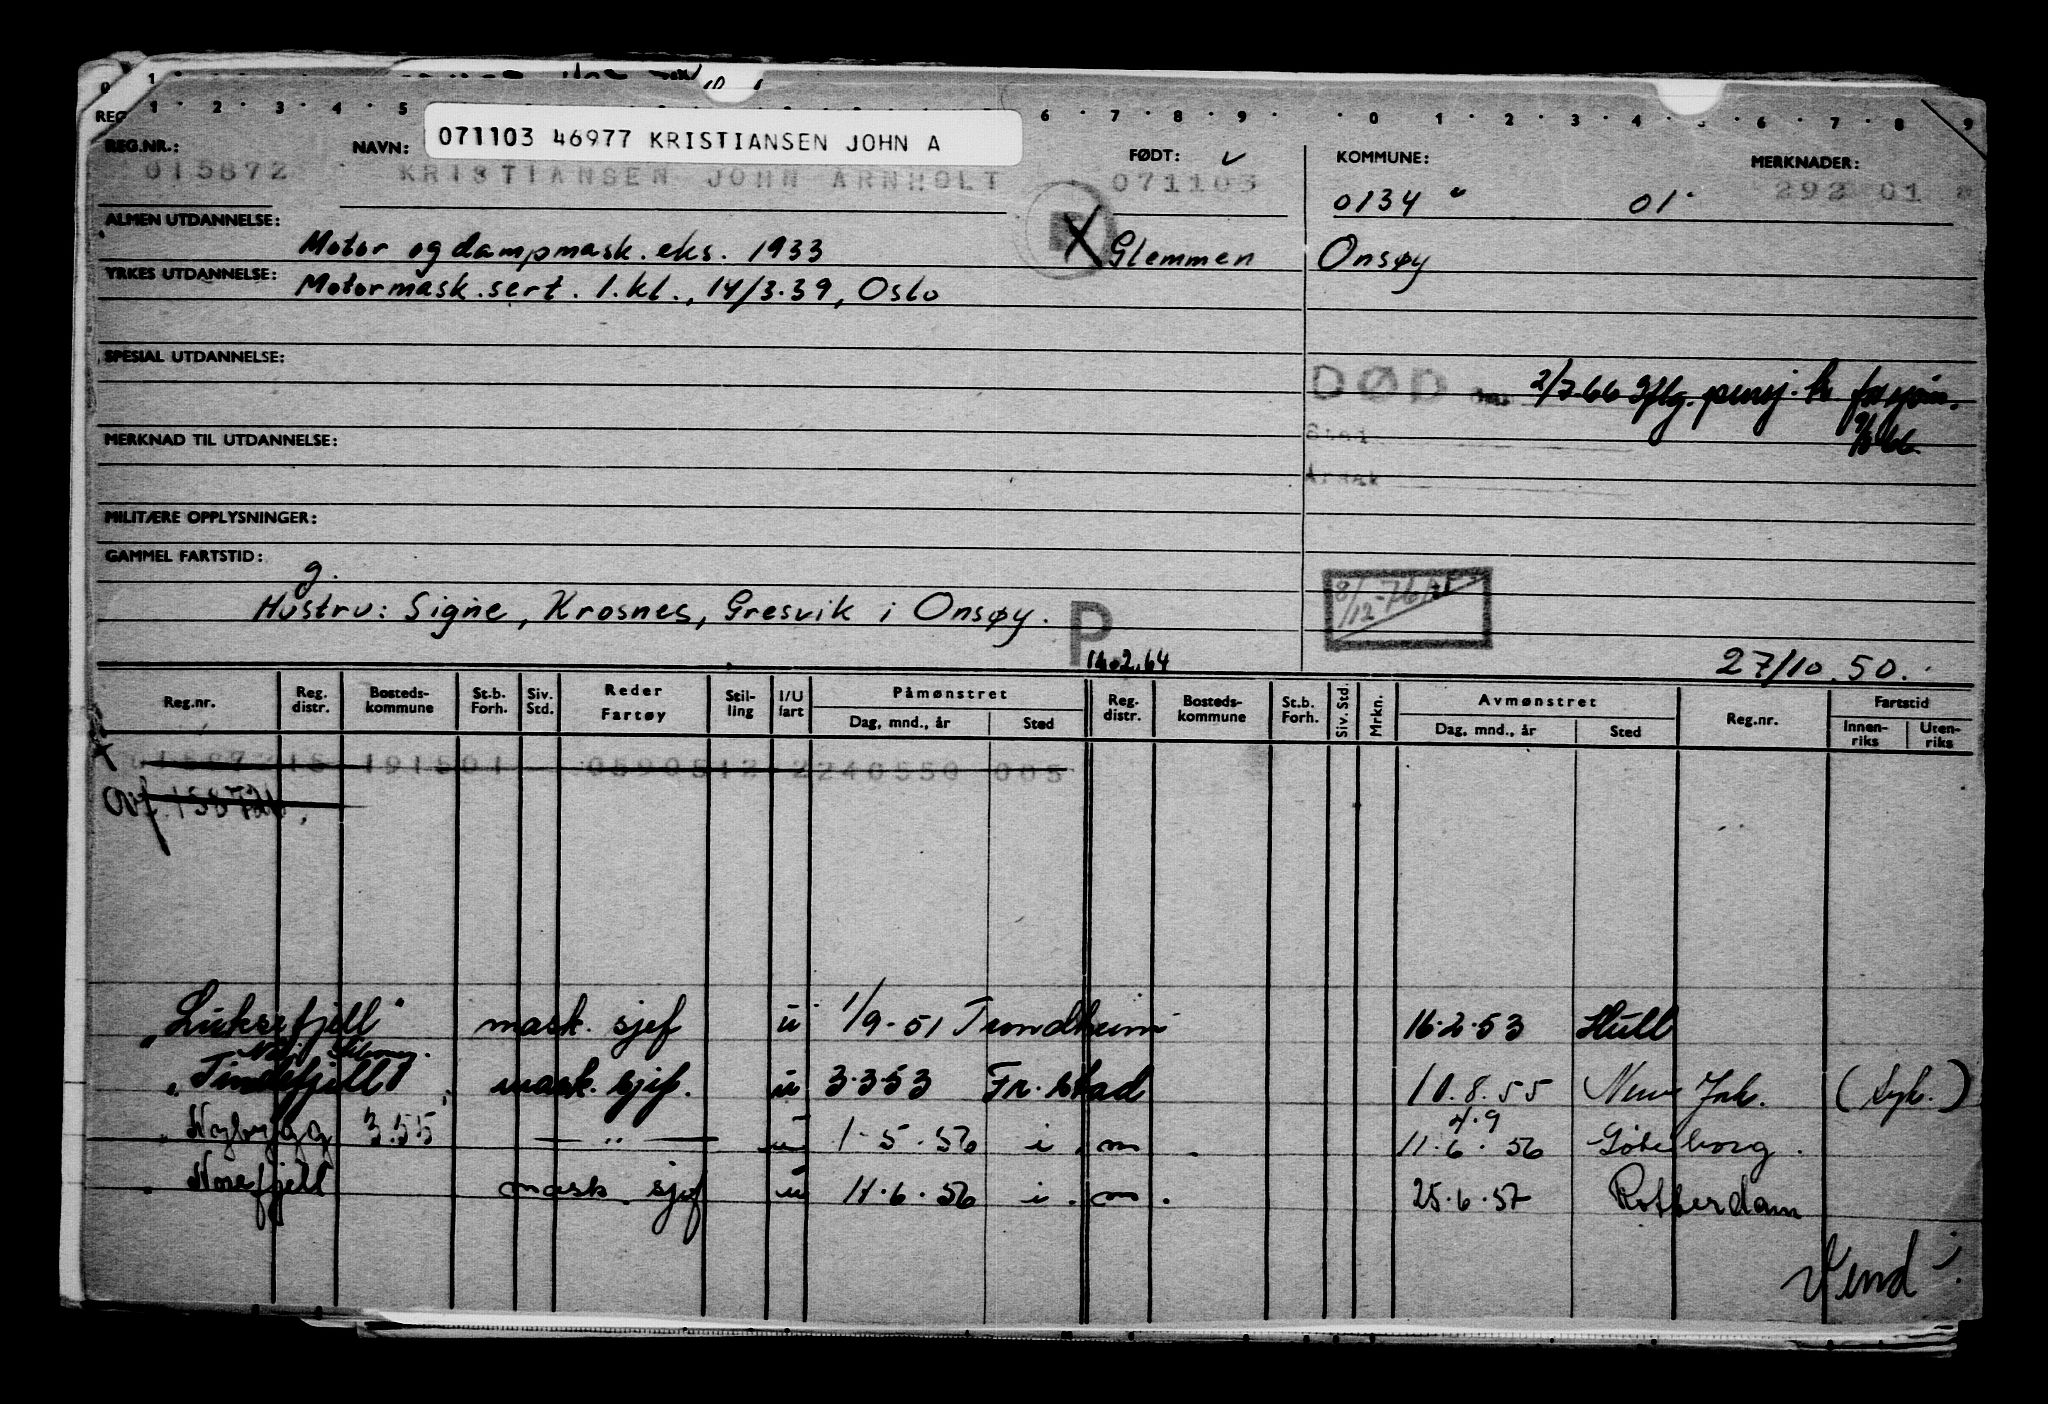 071103 46977 KRISTIANSEN JOHN A
REG.NR.: NAVN: FØDT: KOMMUNE: MERKNADER:
015872 KRISTIANSEN JOHN ARNHOLT 071103 0134 01 292 01
ALMEN UTDANNELSE: Motor og dampmask. eks. 1933 Glemmen Onsøy
YRKES UTDANNELSE: Motormask. sert. 1. kl., 14/3.39, Oslo
SPESIAL UTDANNELSE:
DØD 2/7.66 Iflg. pensj.
MERKNAD TIL UTDANNELSE:
Sted
Årsak
MILITÆRE OPPLYSNINGER:
GAMMEL FARTSTID:
g.
Hustru: Signe, Krosnes, Gresvik i Onsøy.
P
8/12-76
27/10.50.
Reg.nr. Reg. distr. Bosteds-kommune St.b. Forh. Siv. Std. Reder Fartøy Stil-ling I/U fart Påmønstret Dag, mnd., år Sted Reg. distr. Bosteds-kommune St.b. Forh. Siv. Std. Mrkn. Avmønstret Dag, mnd., år Sted Reg.nr. Fartstid Innen-riks Uten-riks
15 191501 0590512 2240550 005
"Luksefjell" mask. sjef u 1/9-51 Trondheim 16.2.53 Hull
"Tindefjell" mask. sjef. u 3.3.53 Fr.stad 10.8.55 New York. (Syk.)
4.9
355 — " — u 1.5.56 i. m. 11.6.56 Göteborg.
Norefjell mask. sjef u 11.6.56 i. m. 25.6.57 Rotterdam
Vend